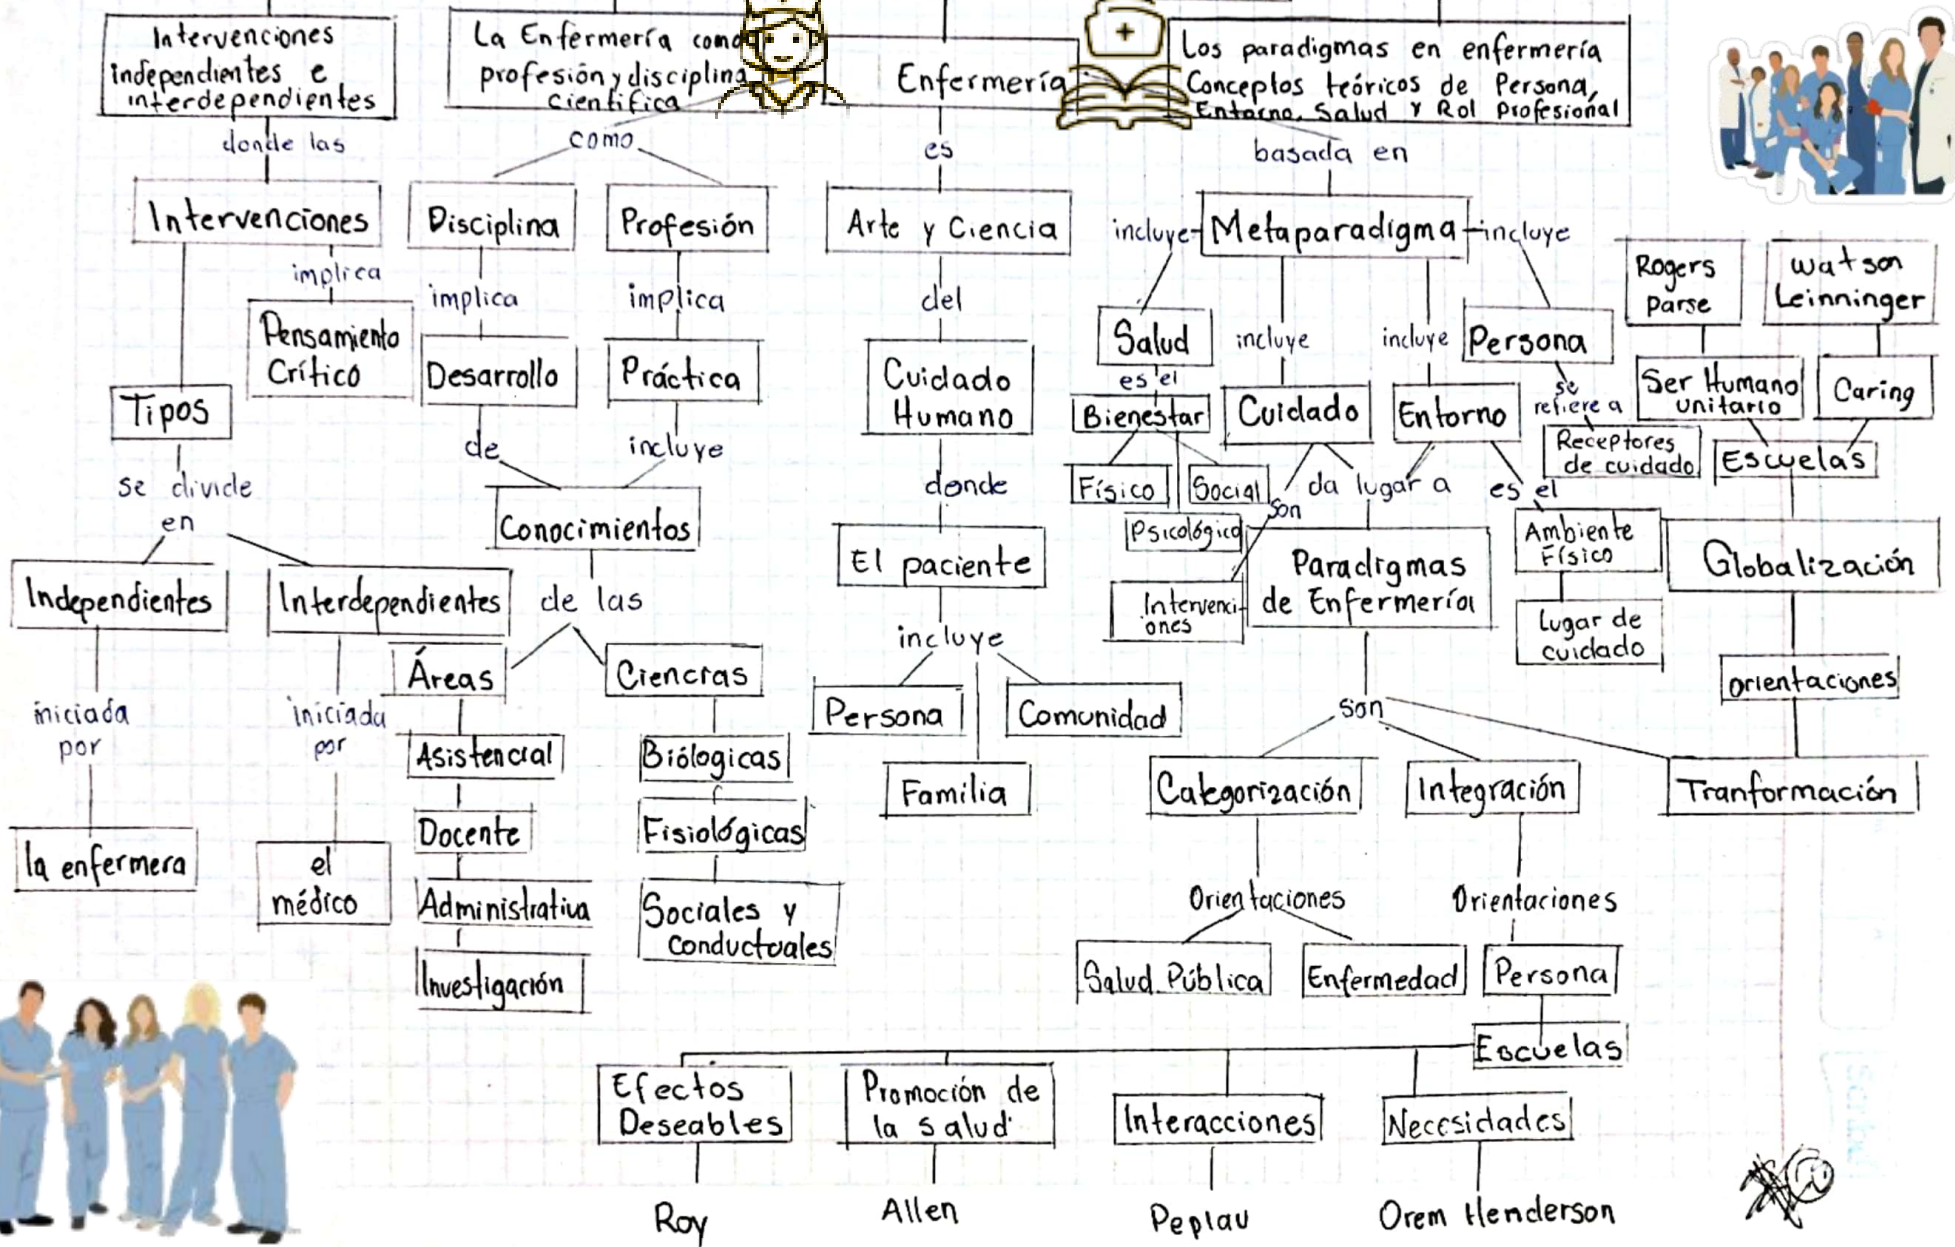 Intervenciones
independientes e
interdependientes
donde las
Intervenciones
implica
Pensamiento
Crítico
Tipos
se divide
en
Independientes
iniciada
por
la enfermera
Interdependientes
iniciada
por
el
médico
La Enfermería como
profesión y disciplina
científica
como
Disciplina
implica
Desarrollo
de
Profesión
implica
Práctica
incluye
Conocimientos
de las
Áreas
Asistencial
Docente
Administrativa
Investigación
Ciencias
Biólogicas
Fisiológicas
Sociales y
conductuales
Enfermería
es
Arte y Ciencia
del
Cuidado
Humano
donde
El paciente
incluye
Persona
Comunidad
Familia
Los paradigmas en enfermería
Conceptos teóricos de Persona,
Entorno, Salud y Rol Profesional
basada en
incluye
Metaparadigma
incluye
Salud
es el
Bienestar
Físico
Social
Psicológico
incluye
Cuidado
son
Intervenci-
ones
da lugar a
incluye
Entorno
es el
Ambiente
Físico
Lugar de
cuidado
Persona
se
refiere a
Receptores
de cuidado
Paradigmas
de Enfermería
son
Categorización
Orientaciones
Salud Pública
Enfermedad
Integración
Orientaciones
Persona
Escuelas
Efectos
Deseables
Roy
Promoción de
la salud
Allen
Interacciones
Peplau
Necesidades
Orem Henderson
Rogers
Parse
Ser Humano
unitario
Watson
Leinninger
Caring
Escuelas
Globalización
orientaciones
Tranformación